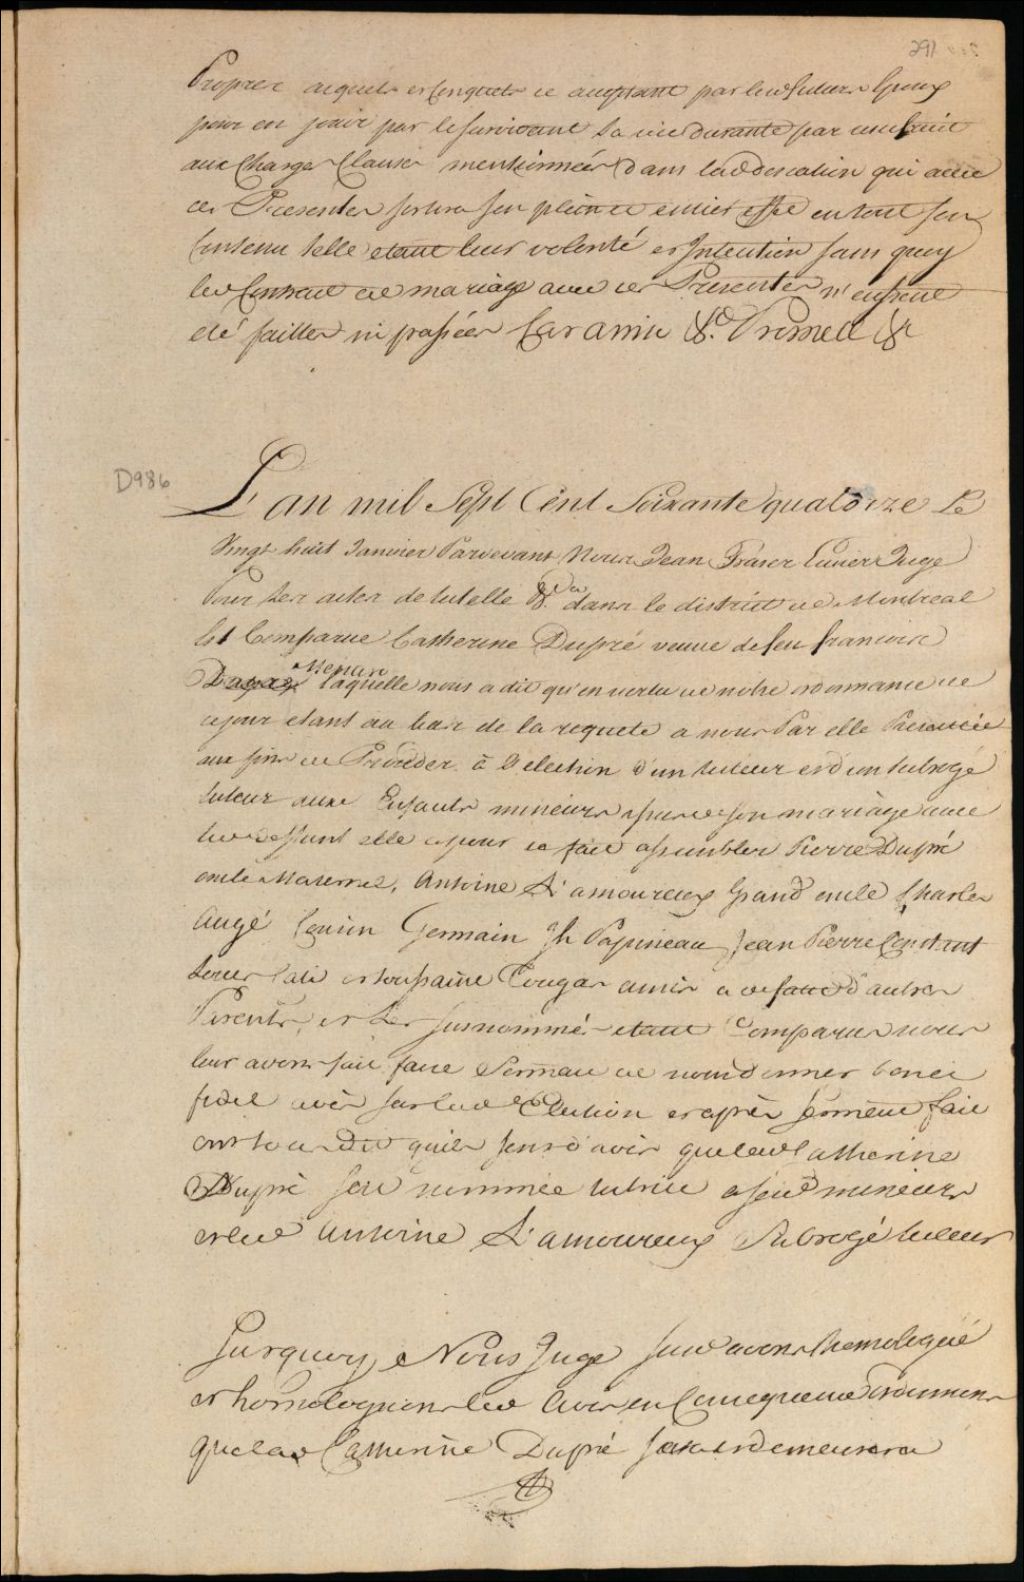 291
Propres acquets et Conquets ce acceptant par led futurs Epoux
pour en jouir par le survivant sa vie durante par usufruit
aux Charges Clauses mentionnées dans lad donation qui avec
ces Presentes sortira son plein et entier effet en tout son
Contenu telle etant leur volonté et Intention sans quoy
led Contrat de mariage avec ces Presentes n'eussent
eté faittes ni passées
D986
L'an mil Sept Cent Soixante quatorze Le
Vingt huit Janvier Pardevant Nous Jean Fraser Ecuier Juge
Pour Les actes de tutelle &c dans le district de Montreal
Est Comparue Catherine Dupré veuve de feu francois
Menar
laquelle nous a dit qu'en vertu de notre ordonnance de
ce jour etant au bas de la requete a nous Par elle Presentée
aux fins de Proceder à L'election d'un tuteur et d'un subrogé
tuteur aux Enfants mineurs issus de son mariage avec
led deffunt elle a fait assembler Pierre Dupré
oncle Maternel, Antoine L'amoureux Grand oncle Charles
Augé Cousin Germain Jh Papineau Jean Pierre Constant
et toussaint amis a defaut d'autres
Parents, et Les susnommés etant Comparus nous
leur avons fait faire Serment de nous donner bon et
fidel avis sur lad Election et après serment fait
ont tous Dit qu'ils sont d'avis que lad Catherine
Dupré soit nommée tutrice a sesd mineurs
et led Antoine L'amoureux Subrogé tuteur
Surquoy, Nous Juge susd avons homologué
et homologuons led Avis en Consequence ordonnons
que lad Catherine Dupré sera et demeurera